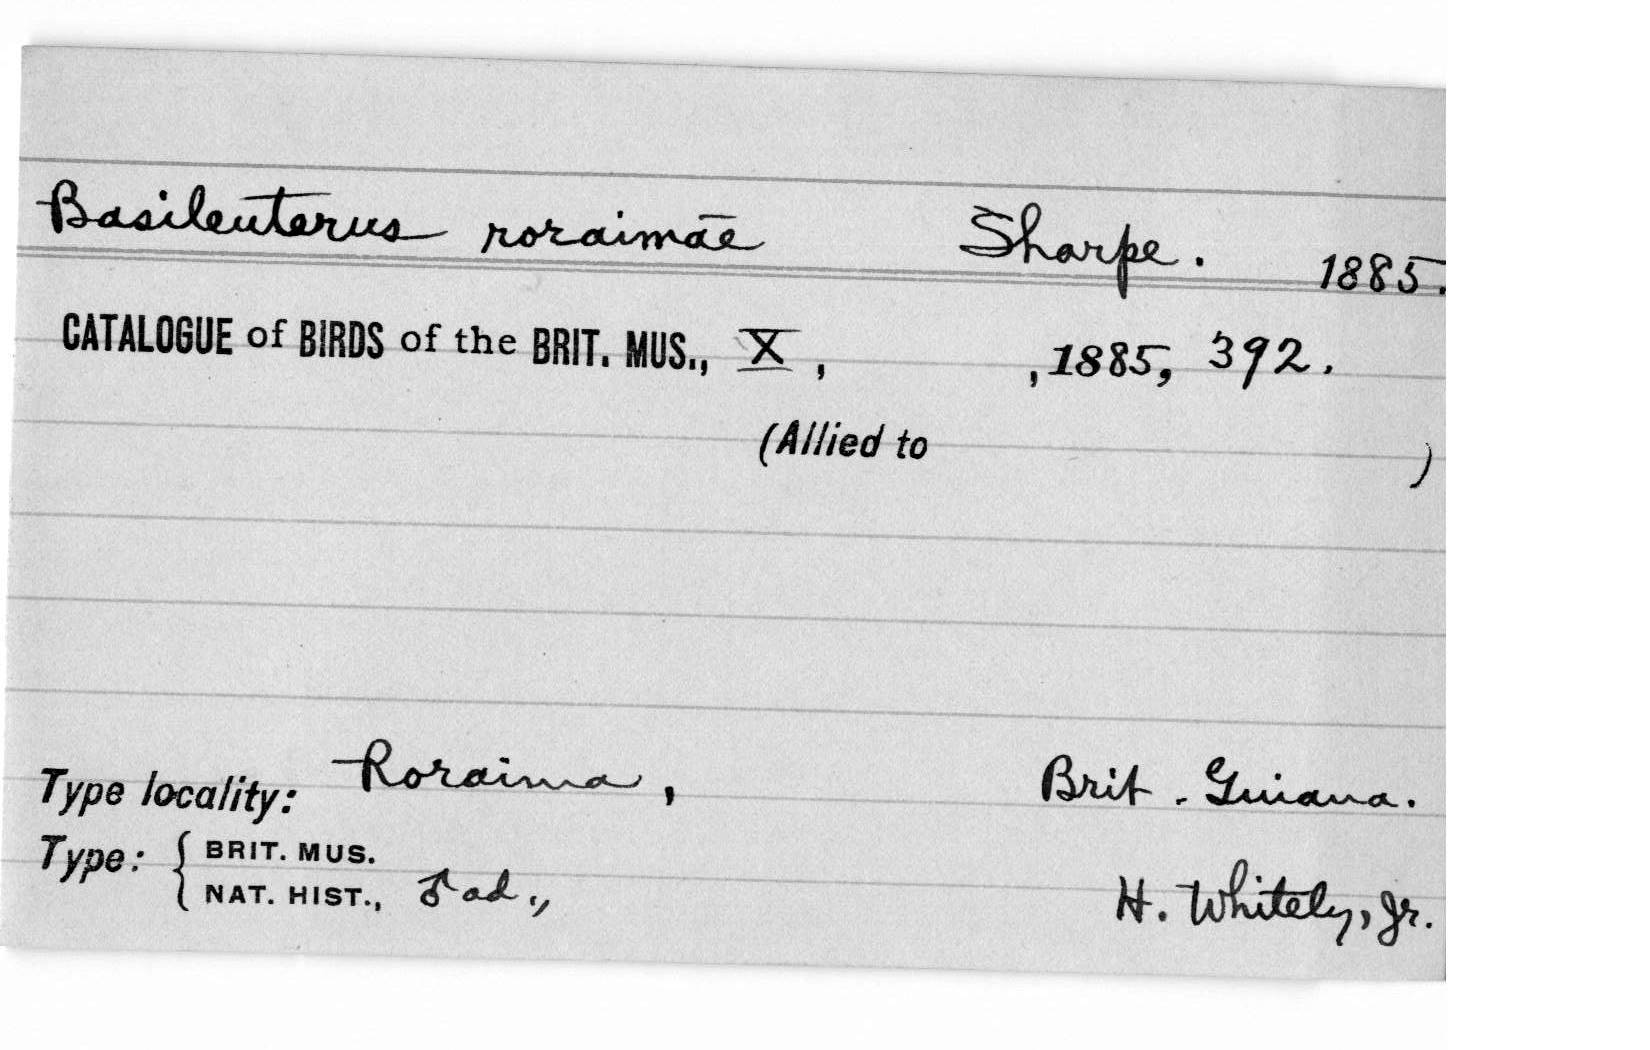 Basileuterus roraimae Sharpe. 1885.
CATALOGUE of BIRDS of the BRIT. MUS., X, , 1885, 392.
(Allied to )
Type locality: Roraima, Brit. Guiana.
Type: { BRIT. MUS.
NAT. HIST., ♂ ad., H. Whitely, Jr.